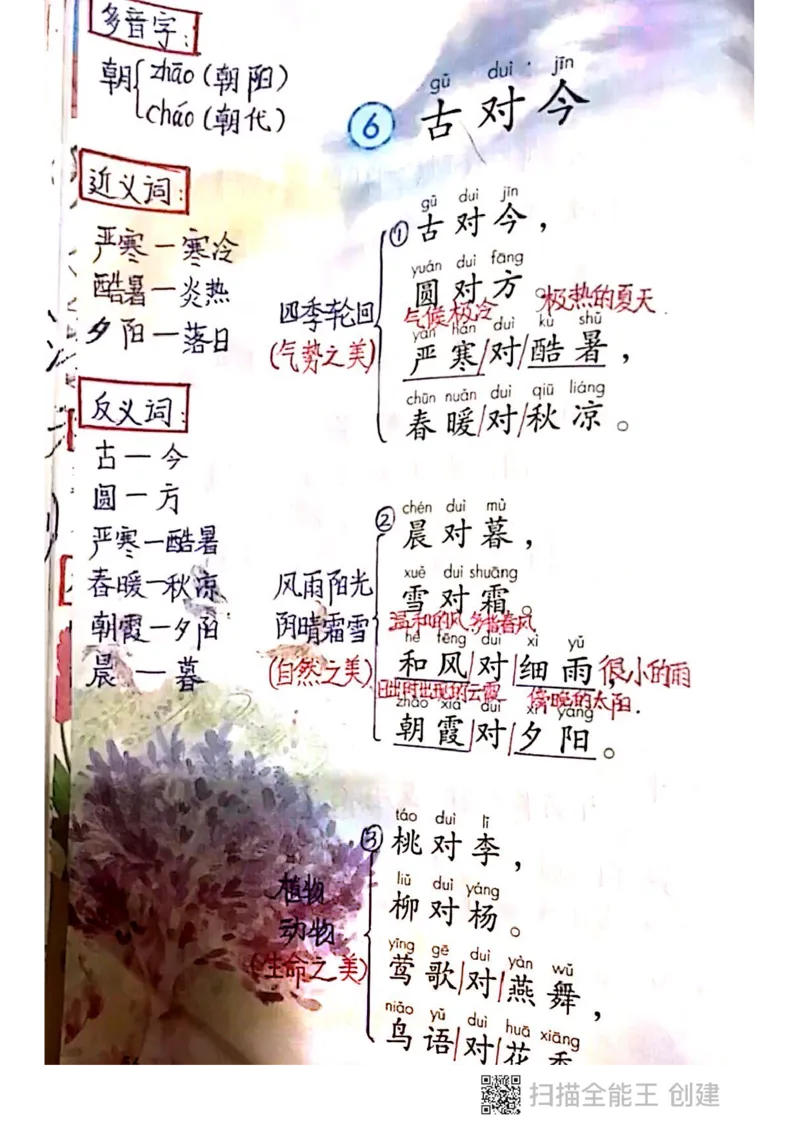 多音字:
朝{zhāo(朝阳)
cháo(朝代)
近义词:
严寒—寒冷
酷暑—炎热
夕阳—落日
反义词:
古—今
圆—方
严寒—酷暑
春暖—秋凉
朝霞—夕阳
晨—暮
gǔ duì jīn
6 古对今
gǔ duì jīn
①古对今，
yuán duì fāng
圆对方。
四季轮回
(气势之美)
气候极冷 极热的夏天
yán hán duì kù shǔ
严寒/对/酷暑，
chūn nuǎn duì qiū liáng
春暖/对/秋凉。
chén duì mù
②晨对暮，
xuě duì shuāng
雪对霜。
风雨阳光
阴晴霜雪
(自然之美)
温和的风,多指春风
hé fēng duì xì yǔ
和风/对/细雨，很小的雨
日出时出现的云霞 傍晚的太阳.
zhāo xiá duì xī yáng
朝霞/对/夕阳。
táo duì lǐ
③桃对李，
liǔ duì yáng
柳对杨。
植物
动物
(生命之美)
yīng gē duì yàn wǔ
莺歌/对/燕舞，
niǎo yǔ duì huā xiāng
鸟语/对/花香
56
扫描全能王 创建